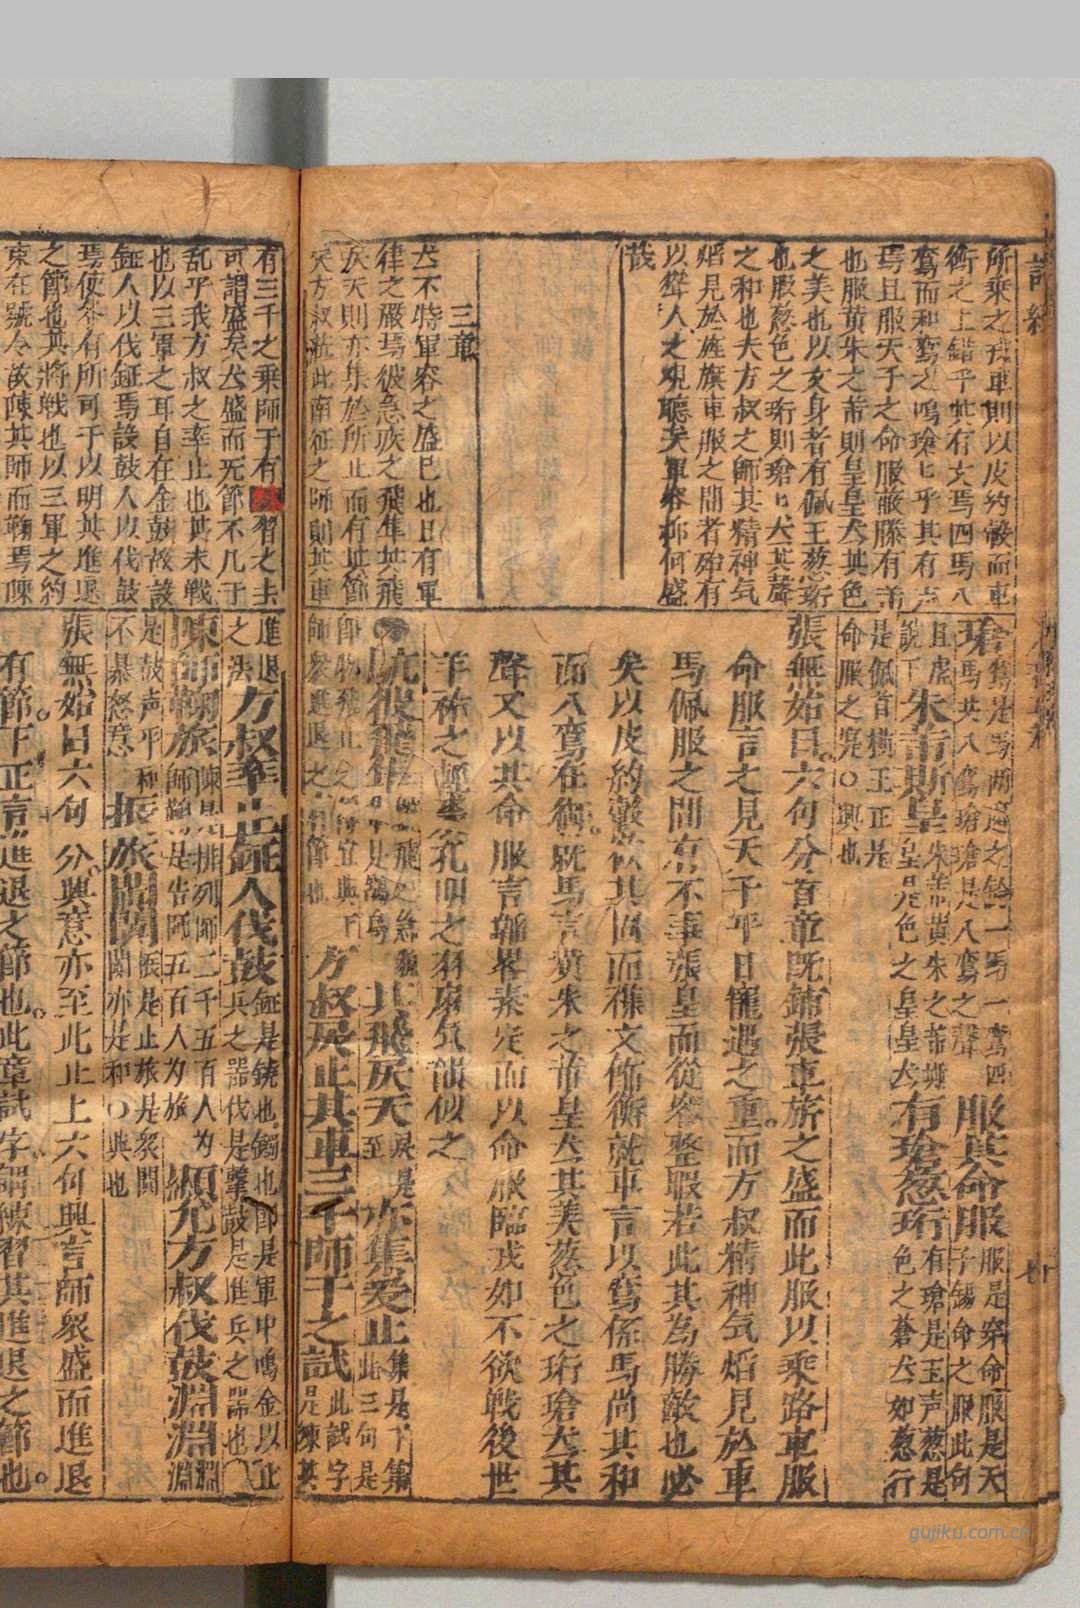 詩經
所乘之戎車則以皮約轂而車
衡之上錯乎其有文焉四馬八
鸞而和鸞之鳴瑲〻乎其有声
焉且服天子之命服蔽膝有芾
也服黄朱之芾則皇皇犬其色
之美也以文身者有佩玉葱珩
也服葱色之珩則瑲〻犬其聲
之和也夫方叔之師其精神气
焰見於旌旗車服之間者殆有
以聳人之覌聽矣軍容抑何盛
哉
三章
犬不特軍容之盛已也日有軍
律之嚴焉彼急疾之飛隼其飛
戾天則亦集於所止而有其節
矣方叔蒞此南征之師則其車
有三千之乘師干有練習之士
可謂盛矣犬盛而无節不几于
乱乎我方叔之率止也其未戰
也以三軍之耳自在金鼓故設
鉦人以伐鉦焉設鼓人以伐鼓
焉使各有所司于以明其進退
之節也其將戰也以三軍之約
束在號令故陳其師而鞠焉陳
瑲 鸞是馬兩邊之鈴一馬一鸞四馬共八鸞瑲瑲是八鸞之聲 服其命服 服是穿命服是天子錫命之服此句
且虛說下 朱芾斯皇 朱芾黄朱之芾斯皇是色之皇皇犬 有瑲葱珩 有瑲是玉声葱是色之蒼犬如葱行
是佩首橫玉正是命服之寔○興也
張無始曰六句分首章既鋪張車旂之盛而此服以乘路車服
命服言之見天子平日寵遇之重而方叔精神气焰見於車
馬佩服之間有不事張皇而從容整暇若此其為勝敵也必
矣以皮約轂於其固而襍文飾衡就車言以鸞係馬尚其和
而八鸞在衡就馬言黄朱之芾皇犬其美葱色之珩瑲犬其
聲又以其命服言雖畧素定而以命服臨戎如不欲戰後世
羊祜之輕裘公孔明之羽扇気韻似之
鴥彼飛隼 其飛戾天 戾是至 亦集爰止 集是下集此三句是
師衆進退之有節也 方叔涖止其車三千師干之試 此試字是練其
進退之法 方叔率止鉦人伐鼓 鉦是鐃也鐲也即是軍中鳴金以止兵之器伐是擊鼓是進兵之器也
陳師鞠旅 陳是排列師二千五百人为師鞠是告師五百人为旅 顯允方叔伐鼓淵淵 淵淵
是鼓声平和不暴怒意 振旅闐闐 振是止旅是衆闐闐亦是和○興也
張無始曰六句分興意亦至此止上六句興言師衆盛而進退
有節下正言進退之節也此章試字謂練習其進退之節也